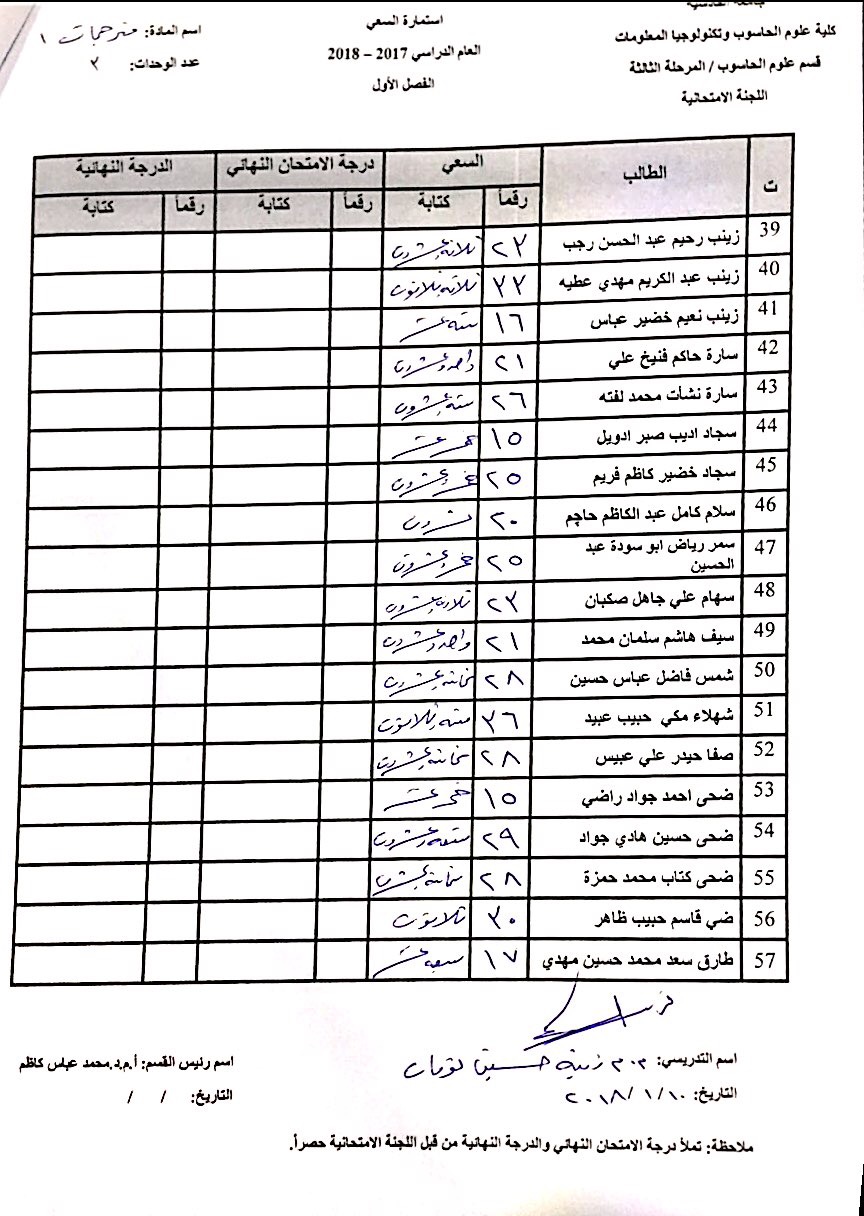 جامعة القادسية
كلية علوم الحاسوب وتكنولوجيا المعلومات
قسم علوم الحاسوب / المرحلة الثالثة
اللجنة الامتحانية
استمارة السعي
العام الدراسي 2017 – 2018
الفصل الأول
اسم المادة: مترجمات ١
عدد الوحدات: ٣
ت الطالب السعي درجة الامتحان النهائي الدرجة النهائية
رقماً كتابة رقماً كتابة رقماً كتابة
39 زينب رحيم عبد الحسن رجب ٢٣ ثلاثة وعشرون
40 زينب عبد الكريم مهدي عطيه ٣٣ ثلاثة وثلاثون
41 زينب نعيم خضير عباس ١٦ ستة عشر
42 سارة حاكم فنيخ علي ٢١ واحد وعشرون
43 سارة نشأت محمد لفته ٢٦ ستة وعشرون
44 سجاد اديب صبر ادويل ١٥ خمس عشر
45 سجاد خضير كاظم فريم ٢٥ خمس وعشرون
46 سلام كامل عبد الكاظم حاچم ٢٠ عشرون
47 سمر رياض ابو سودة عبد
الحسين ٢٥ خمس وعشرون
48 سهام علي جاهل صكبان ٢٣ ثلاث وعشرون
49 سيف هاشم سلمان محمد ٢١ واحد وعشرون
50 شمس فاضل عباس حسين ٢٨ ثمانية وعشرون
51 شهلاء مكي حبيب عبيد ٣٦ ستة وثلاثون
52 صفا حيدر علي عبيس ٢٨ ثمانية وعشرون
53 ضحى احمد جواد راضي ١٥ خمس عشر
54 ضحى حسين هادي جواد ٢٩ تسعة وعشرون
55 ضحى كتاب محمد حمزة ٢٨ ثمانية وعشرون
56 ضي قاسم حبيب ظاهر ٣٠ ثلاثون
57 طارق سعد محمد حسين مهدي ١٧ سبعة عشر
اسم التدريسي: م.م زينة حسين تومان
التاريخ: ٢٠١٨/١/١٠
اسم رئيس القسم: أ.م.د.محمد عباس كاظم
التاريخ: / /
ملاحظة: تملأ درجة الامتحان النهائي والدرجة النهائية من قبل اللجنة الامتحانية حصراً.